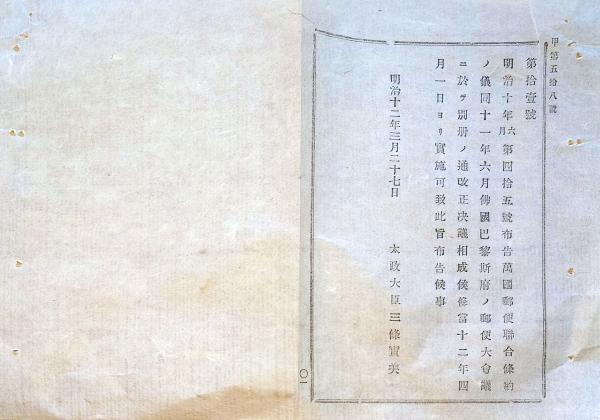 甲第五拾八號
第拾壹號
明治十年六月第四拾五號布告萬國郵便聯合條約
ノ儀同十一年六月佛國巴黎斯府ノ郵便大會議
ニ於テ別册ノ通改正决議相成候條當十二年四
月一日ヨリ實施可致此旨布告候事
明治十二年三月二十七日
太政大臣三條實美
〇一